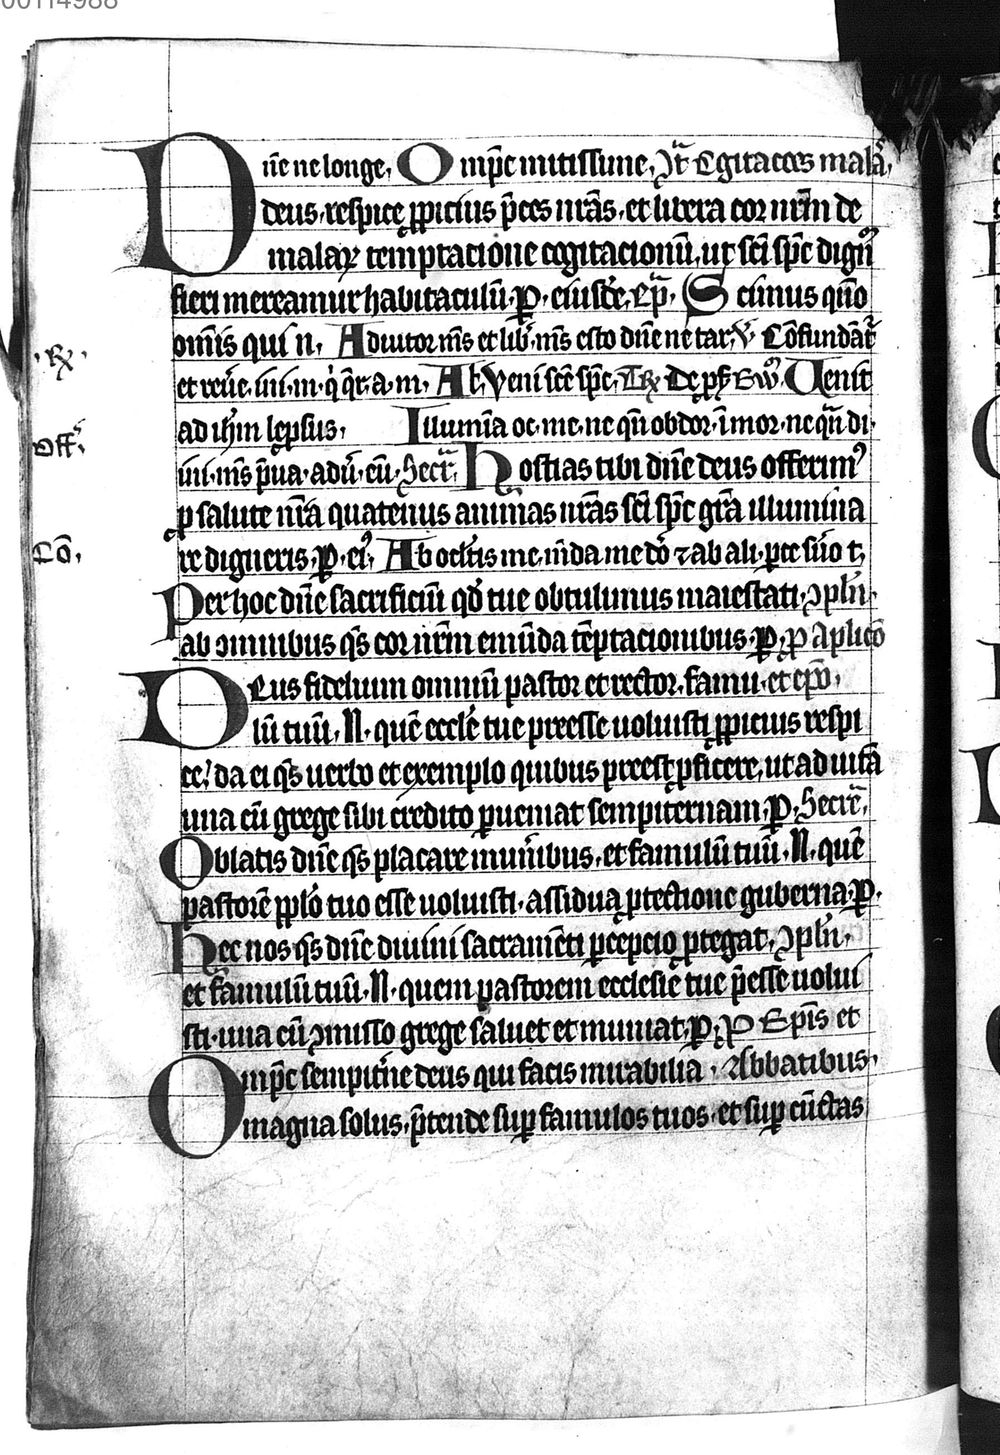 00114988
Dn̄e ne longe, Omp̄s mitissime, Cōtͣ Cogitacōes malaͣ,
deus, respice ꝓpicius p̄ces nr̄as, et libera cor nr̄m de
malaꝝ temptacione cogitacionū, ut sc̄i sp̄c dignͫ
fieri mereamur habitaculū. P. eiusdē. Ep̄. Scimus qm̄o
om̄is qui n. Adiutor m̄s et lib. m̄s esto dn̄e ne tar. V. Cōfundāt
.Rx. et reue. ini. m. q̇ qr. a. m. At. Veni sc̄e sp̄c, Tx De pf Ewͫ. Uenit
ad ih̄m lepsus, Illumīa oc. me. ne qn̄ obdor. ī mor. ne qn̄ di.
Off. ini. m̄s p̄ua. adū. eū. Secr̄. Hostias tibi dn̄e deus offerimꝰ
ꝓ salute nr̄a quatenus animas nr̄as sc̄i sp̄c gr̄a illumina
Cō. re digneris. P. eiꝰ, Ab ocl̄tis me, m̄da me dō ⁊ ab ali. pce s̄uo t,
Per hoc dn̄e sacrificiū qd̄ tue obtulimus maiestati. ꝯpln̄.
ab omnibus qs̄ cor nr̄m emūda tēptacionibus. P. P Aplicō
Deus fidelium omniū pastor et rector, famu. et ep̄o.
lū tuū. N. quē eccle tue preesse uoluisti ꝓpicius respi
ce: da ei qs̄ uerbo et exemplo quibus preest ꝓficere, ut ad uitā
una cū grege sibi credito ꝑueniat sempiternam. P. Secre.
Oblatis dn̄e qs̄ placare mun̄ibus, et famulū tuū. N. quē
pastorē pplō tuo esse uoluisti. assidua ꝓtectione guberna. P.
Hec nos qs̄ dn̄e diuini sacramēti ꝑcepcio ꝓtegat, ꝯpln̄.
et famulū tuū. N. quem pastorem ecclesie tue p̄esse uolui
sti. una cū ꝯmisso grege saluet et muniat. P. P Ep̄is et
Omp̄s sempit̄ne deus qui facis mirabilia. Abbatibus.
magna solus, p̄tende suꝑ famulos tuos. et suꝑ cūctas